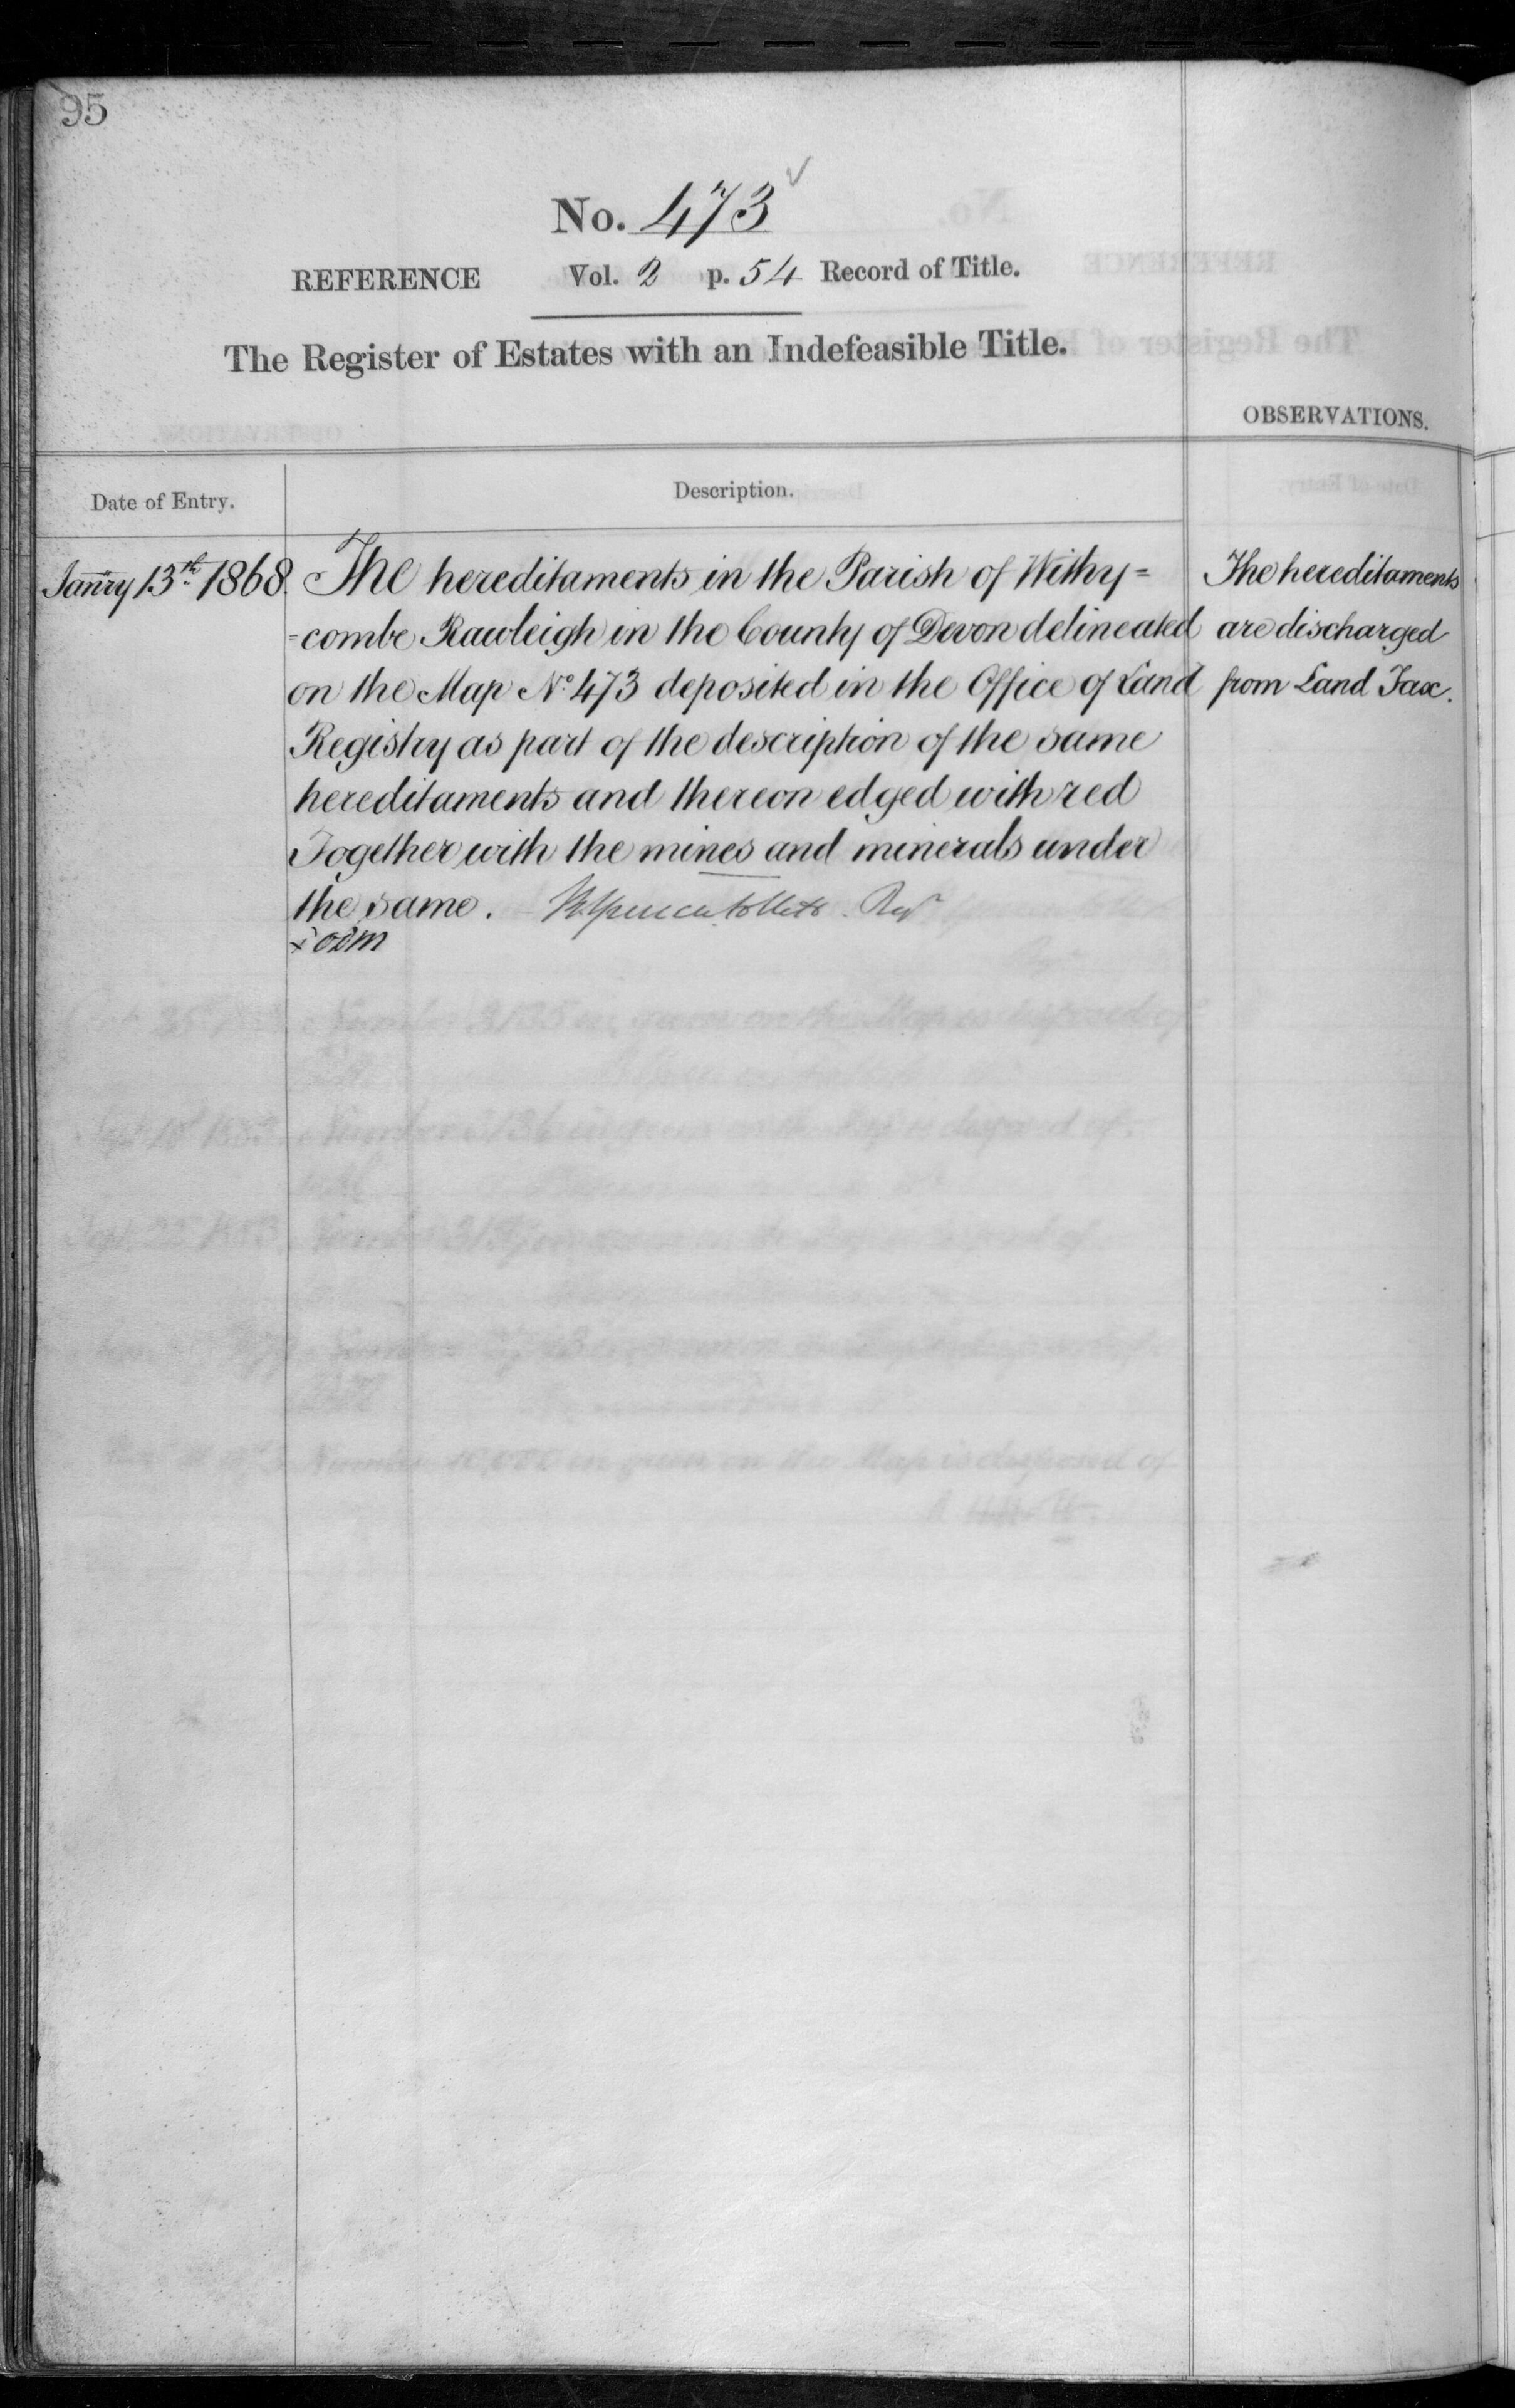 95
No. 473
REFERENCE Vol. 2 p. 54 Record of Title.
The Register of Estates with an Indefeasible Title.
OBSERVATIONS.
Date of Entry. Description.
Janry 13th 1868. The hereditaments in the Parish of Withy=
=combe Rawleigh in the County of Devon delineated
on the Map No. 473 deposited in the Office of Land
Registry as part of the description of the same
hereditaments and thereon edged with red
Together with the mines and minerals under
the same.
The hereditaments
are discharged
from Land Tax.